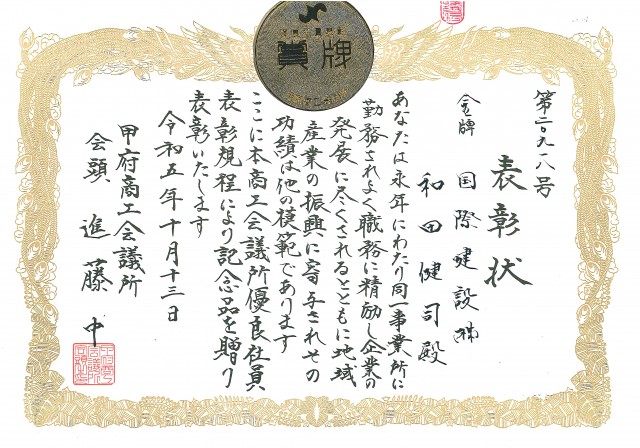 賞牌
第二〇九一八号
表彰状
金牌 国際建設㈱
和田健司殿
あなたは永年にわたり同一事業所に
勤務されよく職務に精励し企業の
発展に尽くされるとともに地域
産業の振興に寄与されその
功績は他の模範であります
ここに本商工会議所優良社員
表彰規程により記念品を贈り
表彰いたします
令和五年十月十三日
甲府商工会議所
会頭 進藤中